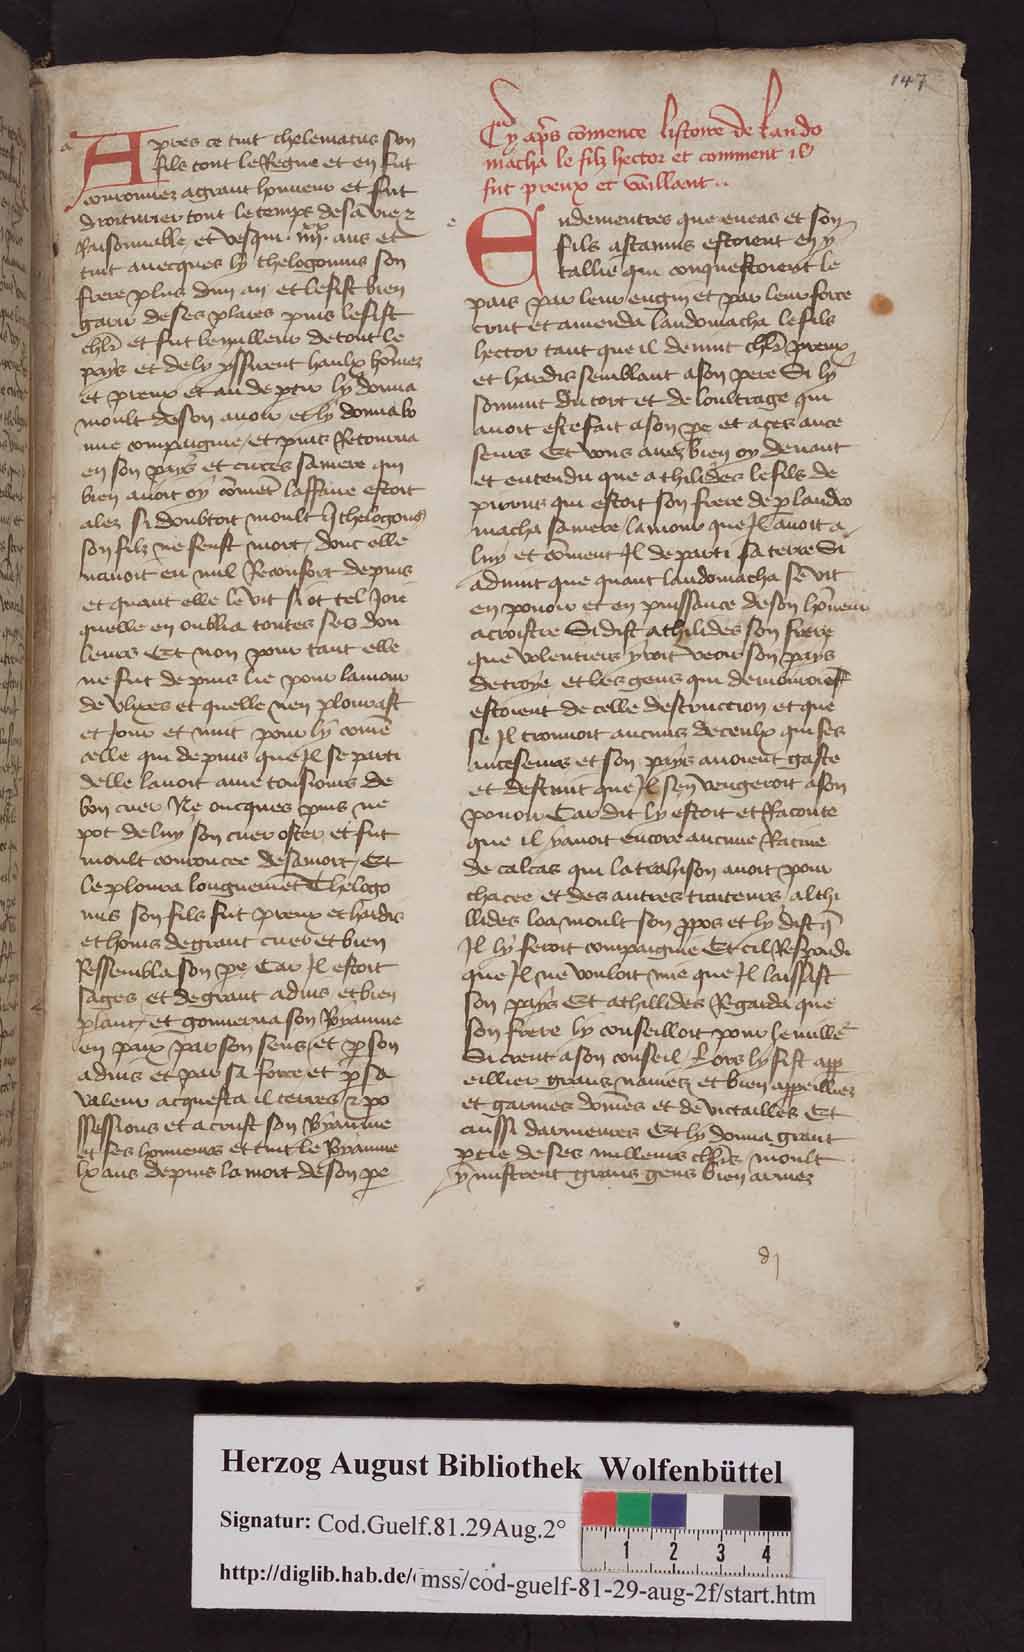 147
Apres ce tint thelematus son
fils tout le Regne et en fut
couronnez a grant honneur et fut
droiturier tout le temps de sa vie z
Raisonnable et vesqui iiiixx ans et
tint auecques ly thelogonus son
frere plus dun an et le fist bien
garir de ses plaies puis le fist
chlr et fut le milleur de tout le
pays et de ly yssirent haulx homez
et preux et au de ptir ly donna
moult de son auoir et ly donna bo
nne compaignie et puis Retourna
en son pays et encres sa mere qui
bien auoit oy comet laffaire estoit
alez si doubtoit moult q thelogonus
son filz ne feust mort donc elle
nauoit eu nul Reconfort depuis
et quant elle le vit si ot tel Joie
quelle en oublia toutes ses dou
leurs Et non pour tant elle
ne fut depuis lie pour lamour
de vlyxes et quelle nen plourast
et Jour et nuit pour ly come
celle qui depuis que Jl se parti
delle lauoit ame tousiours de
bon cuer Ne oncques puis ne
pot de luy son cuer oster et fut
moult couroucee de sa mort Et
le ploura longuemet Thelogo
nus son fils fut preux et hardis
et homs de grant cuer et bien
Ressembla son pe Car Jl estoit
sages et de grant aduis et bien
plant et gouuerna son Royaume
en paix par son sens et p son
aduis et par sa force et p sa
valeur acquesta il terres z po
ssessions et acruft son Royaume
et ses honneurs et tint le Royaume
lx ans depuis la mort de son pe
Cy aps comence listoire de lando
macha le filz hector et comment il
fut preux et vaillant
Endementres que eneas et son
fils ascanius estoient en y
tallie qui conquestoient le
pais par leur engin et par leur force
crut et amenda landomacha le fils
hector tant que il deuint chlr preux
et hardis semblant a son pere Si ly
souuint du tort et de loultrage qui
auoit este fait a son pe et a ces ance
seurs Et vous auez bien oy deuant
et entendu que athilides le fils de
pirrus qui estoit son frere de p landro
macha sa mere lamour que Jl auoit a
luy et coment Jl departi sa terre Si
aduint que quant landomacha se vit
en pouoir et en puissance de son honneur
acroistre Si dist athilides son frere
que volentiers yroit veoir son pays
de troye et les gens qui demouroiet
estoient de celle destruccion et que
se Jl trouuoit aucuns de ceulx qui ses
ancesseurs et son pays auoient gaste
et destruit que Jl sen vengeroit a son
pouoir Car dit ly estoit et Raconte
que il yauoit encore aucune Racine
de calcas qui la trahison auoit pour
chacee et des autres traiteurs althi
llides loa moult son ppos et ly dist q
Jl ly feroit compaignie Et cil Respondi
que Jl ne vouloit mie que Jl laissast
son pays Et athillides Regarda que
son frere ly conseilloit pour le mille
Si creut a son conseil Lors ly fist app
eillier grans nauiez et bien appeilliez
et garnies domes et de victailles Et
aussi darmeures Et ly donna grant
ptie de ses milleurs chlrs moult
y mistrent grans gens bien armez
Herzog August Bibliothek Wolfenbüttel
Signatur: Cod.Guelf.81.29Aug.2°
http://diglib.hab.de/mss/cod-guelf-81-29-aug-2f/start.htm
1 2 3 4